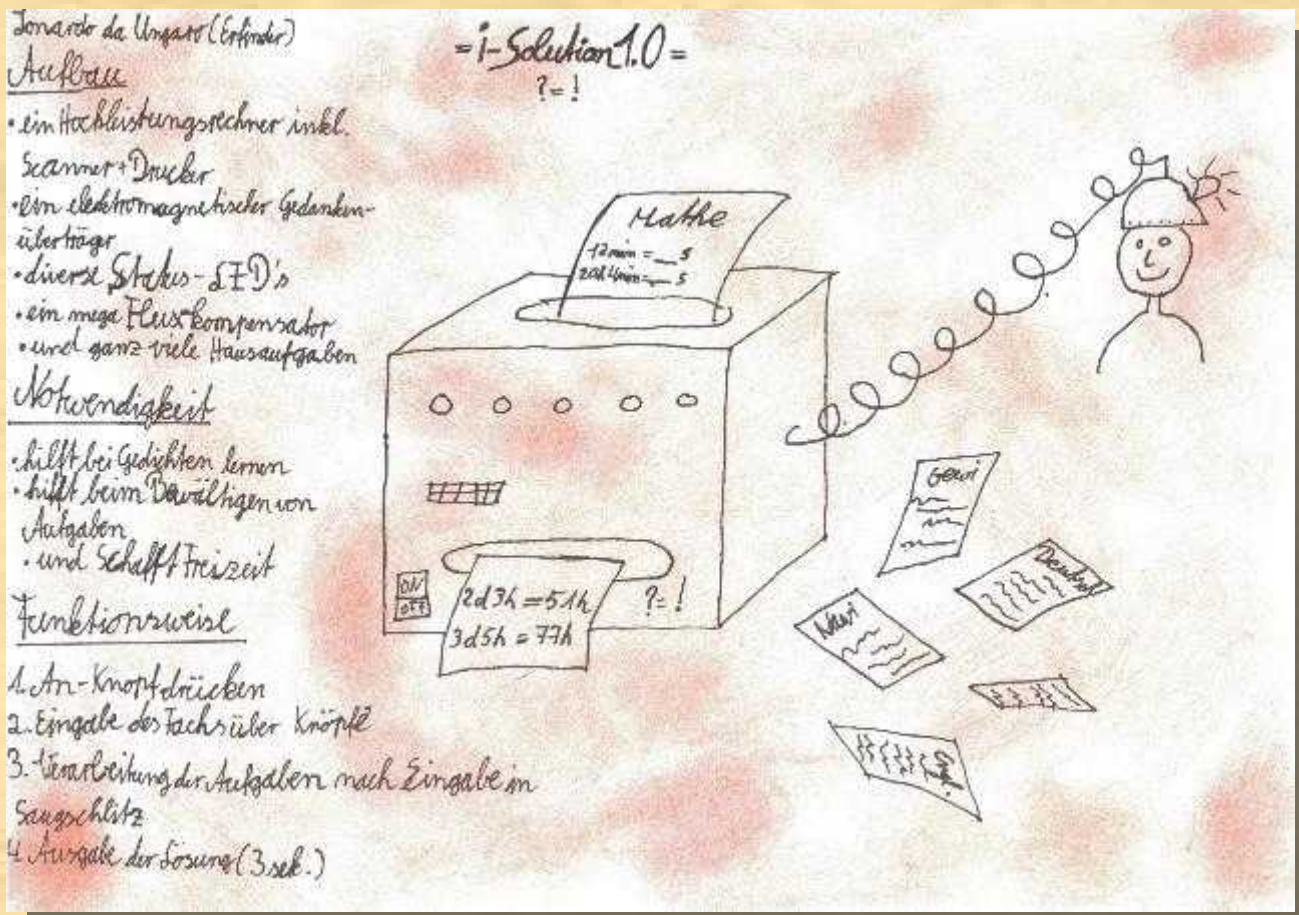 Jonardo da Ungaro (Erfinder)
= i-Solution 1.0 =
? = !
Aufbau
• ein Hochleistungsrechner inkl.
Scanner + Drucker
• ein elektromagnetischer Gedanken-
überträger
• diverse Status-LED's
• ein mega Fluxkompensator
• und ganz viele Hausaufgaben
Notwendigkeit
• hilft bei Gedichten lernen
• hilft beim Bewältigen von
Aufgaben
• und Schafft Freizeit
Funktionsweise
1. An-Knopf drücken
2. Eingabe des Fachs über Knöpfe
3. Verarbeitung der Aufgaben nach Eingabe in
Saugschlitz
4. Ausgabe der Lösung (3 sek.)
Mathe
12 min = __ s
20h 4min = __ s
ON
OFF
2d 3h = 51h
3d 5h = 77h
? = !
Gewi
Deutsch
Nawi